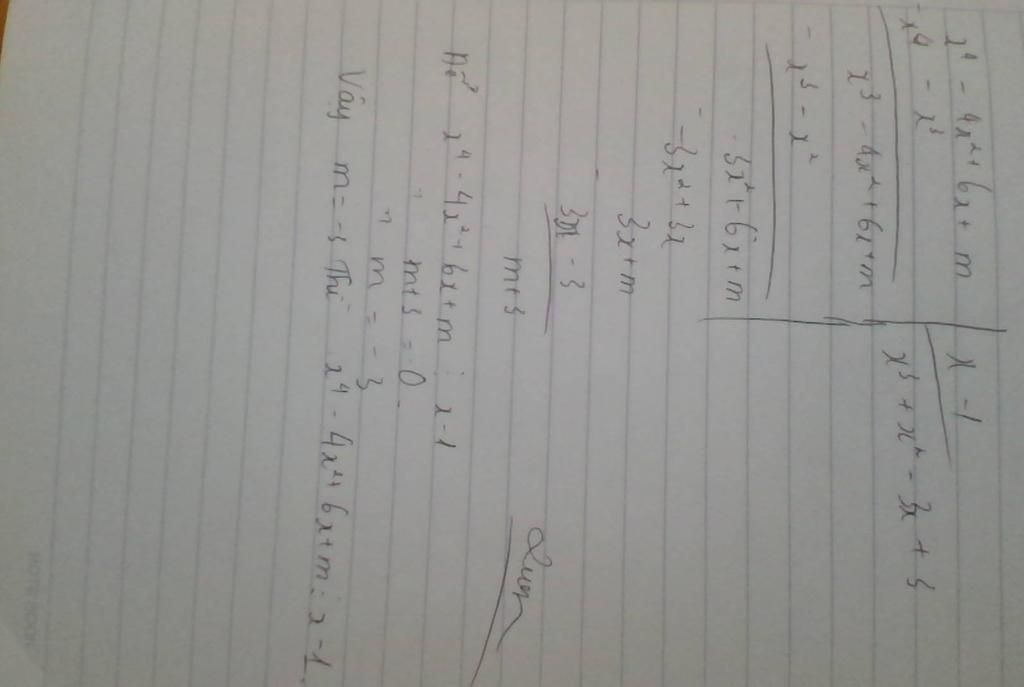 x⁴ - 4x² + 6x + m | x - 1
- x⁴ - x³ | x³ + x² - 3x + 3
x³ - 4x² + 6x + m
- x³ - x²
- 3x² + 6x + m
- -3x² + 3x
3x + m
- 3x - 3
m + 3
Để x⁴ - 4x² + 6x + m ⋮ x - 1
" m + 3 = 0
" m = - 3
Vậy m = -3 Thì x⁴ - 4x² + 6x + m ⋮ x - 1